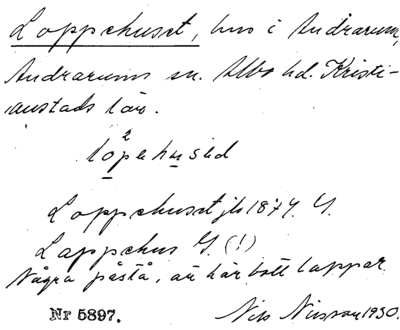 Loppehuset, hus i Andrarum,
Andrarums sn. Albo hd. Kristi-
anstads län.
lopehused
Loppehuset jb 1874. G.
Lappehus G (!)
Några påstå, att här bott lappar.
Nr 5897.
Nils Nilsson 1930.